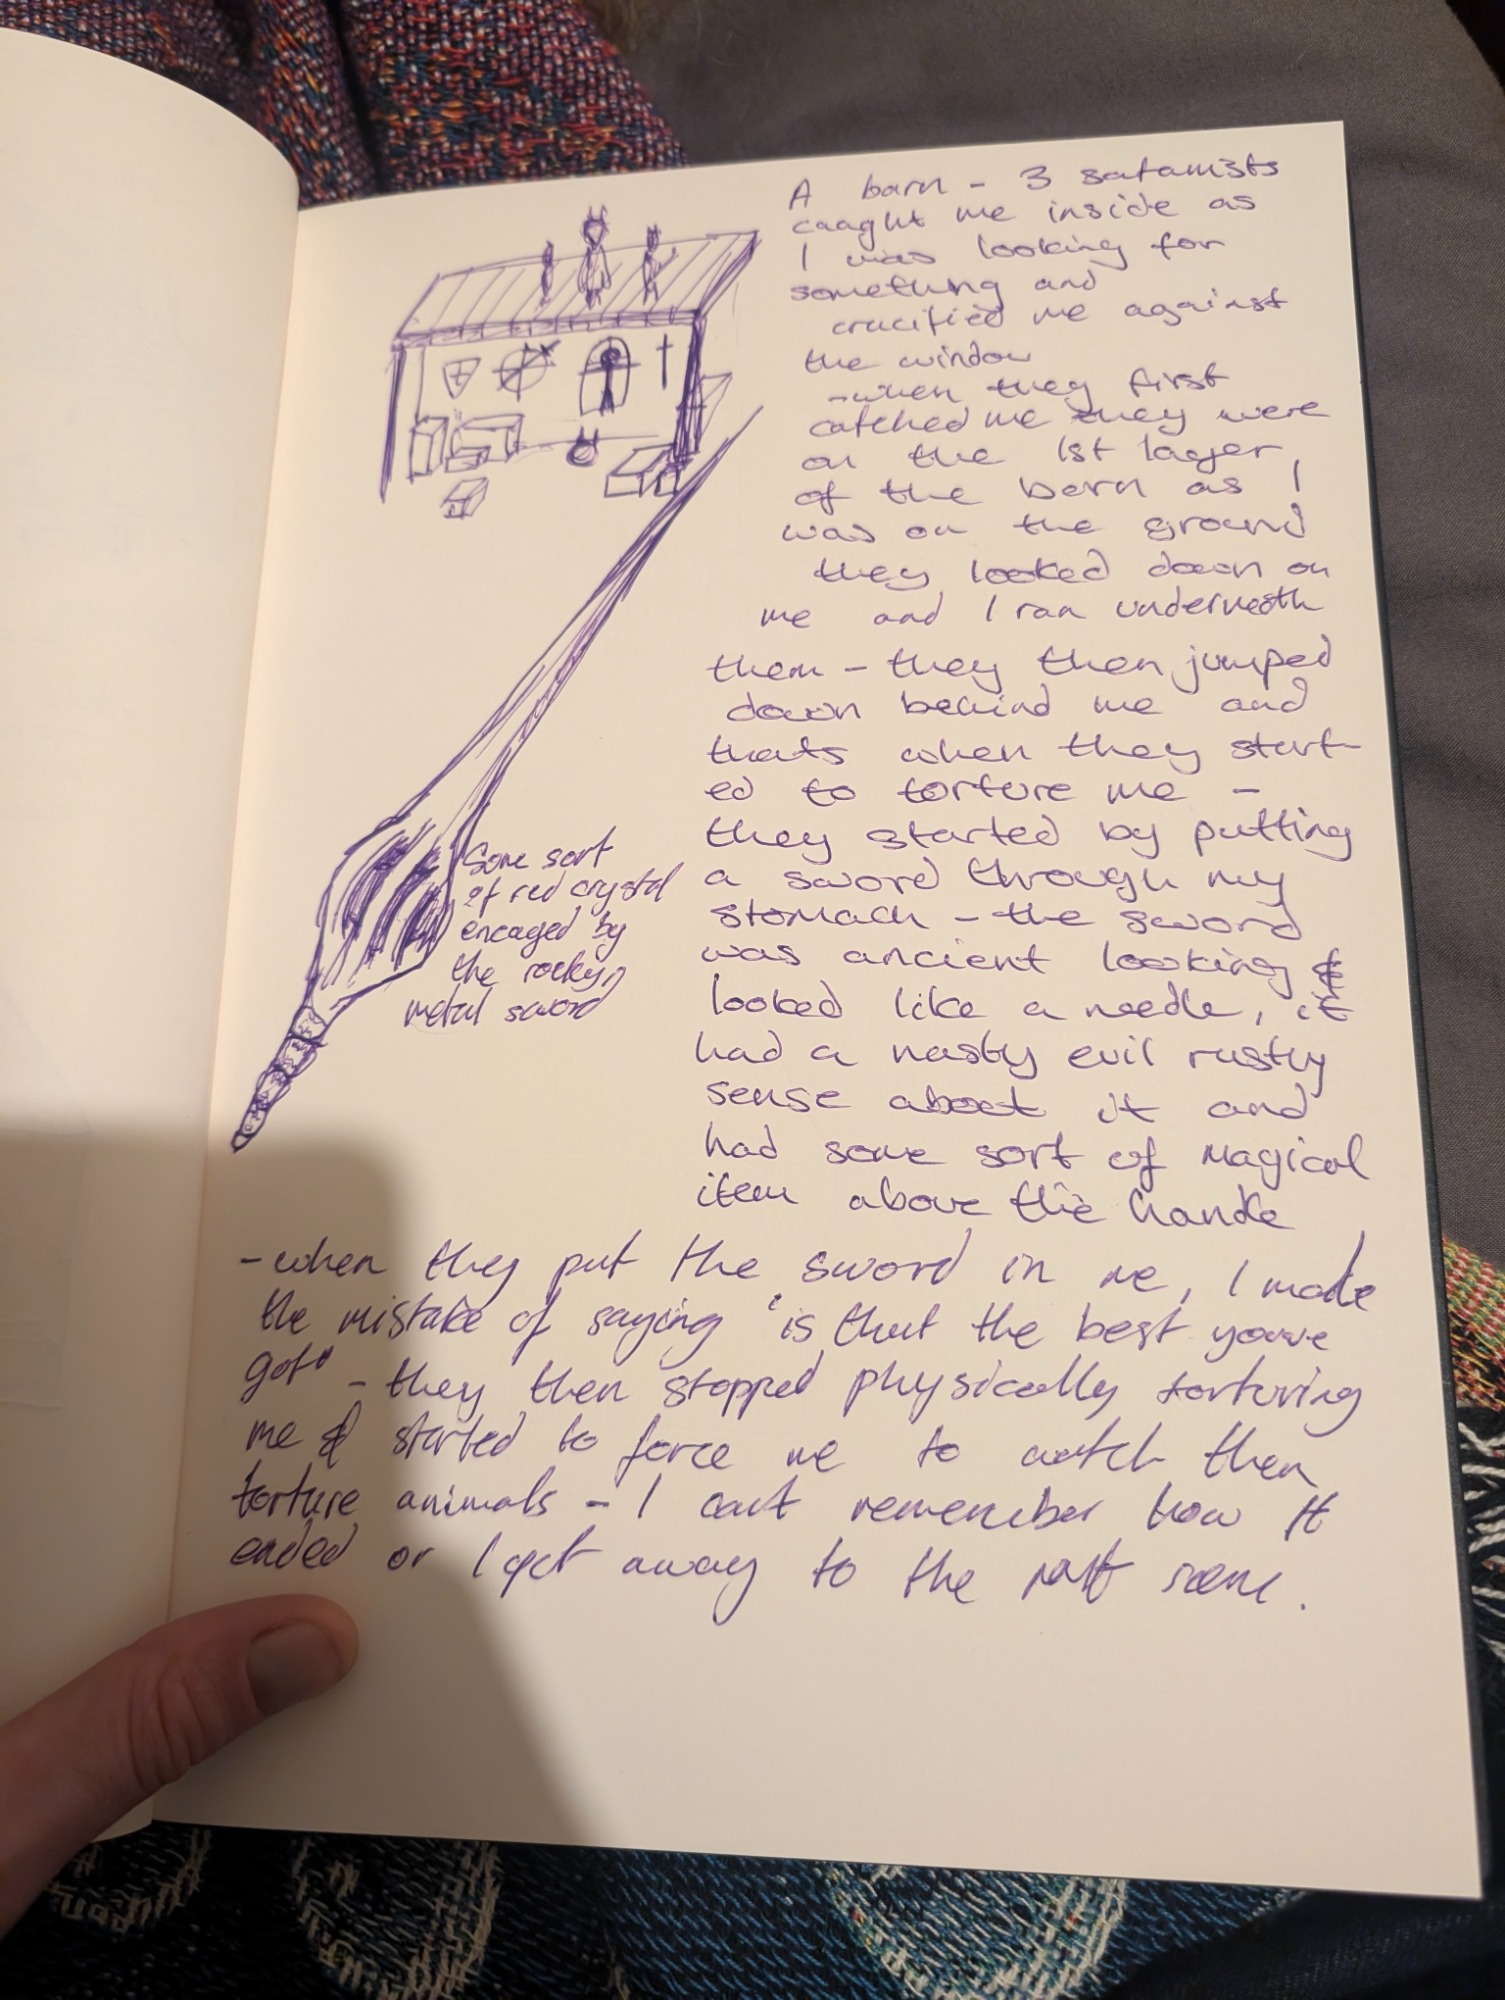 A barn - 3 satanists
caaght me inside as
I was looking for
something and
crucified me against
the window
- when they first
catched me they were
on the 1st layer
of the barn as I
was on the ground
they looked down on
me and I ran underneath
them - they then jumped
down behind me and
thats when they start-
ed to torture me -
they started by putting
a sword through my
stomach - the sword
was ancient looking &
looked like a needle, it
had a nasty evil rusty
sense about it and
had some sort of magical
item above the handle
Some sort
of red crystal
encaged by
the rocky,
metal sword
- when they put the sword in me, I made
the mistake of saying 'is that the best youve
got" - they then stopped physically torturing
me & started to force me to watch them
torture animals - I cant remember how it
ended or I got away to the next scene.